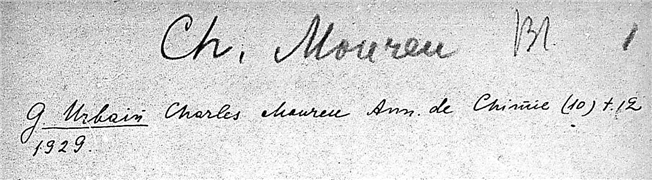 Ch. Moureu Bl. 1
G. Urbain Charles Moureu Ann. de Chimie (10) t. 12
1929.